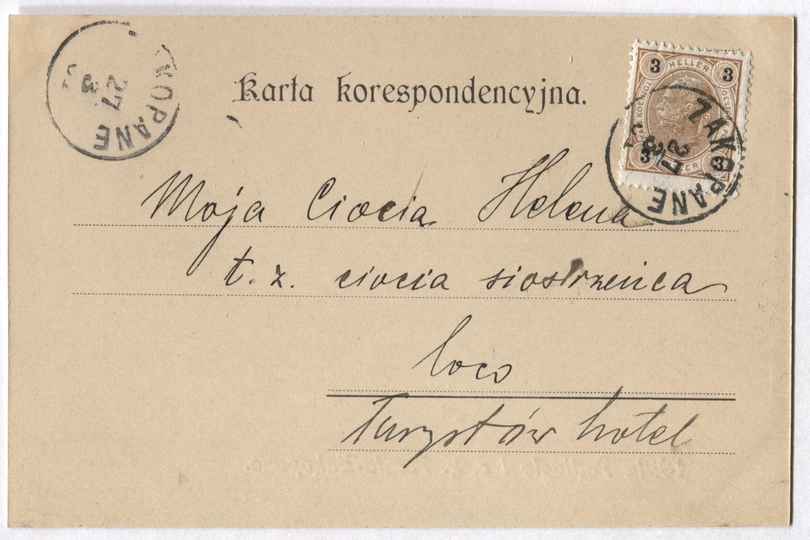 Karta korespondencyjna.
ZAKOPANE
27
3
3 HELLER 3
3 3
ZAKOPANE
27
3
Moja Ciocia Helena
t. z. ciocia siostrzeńca
loco
Turystów hotel